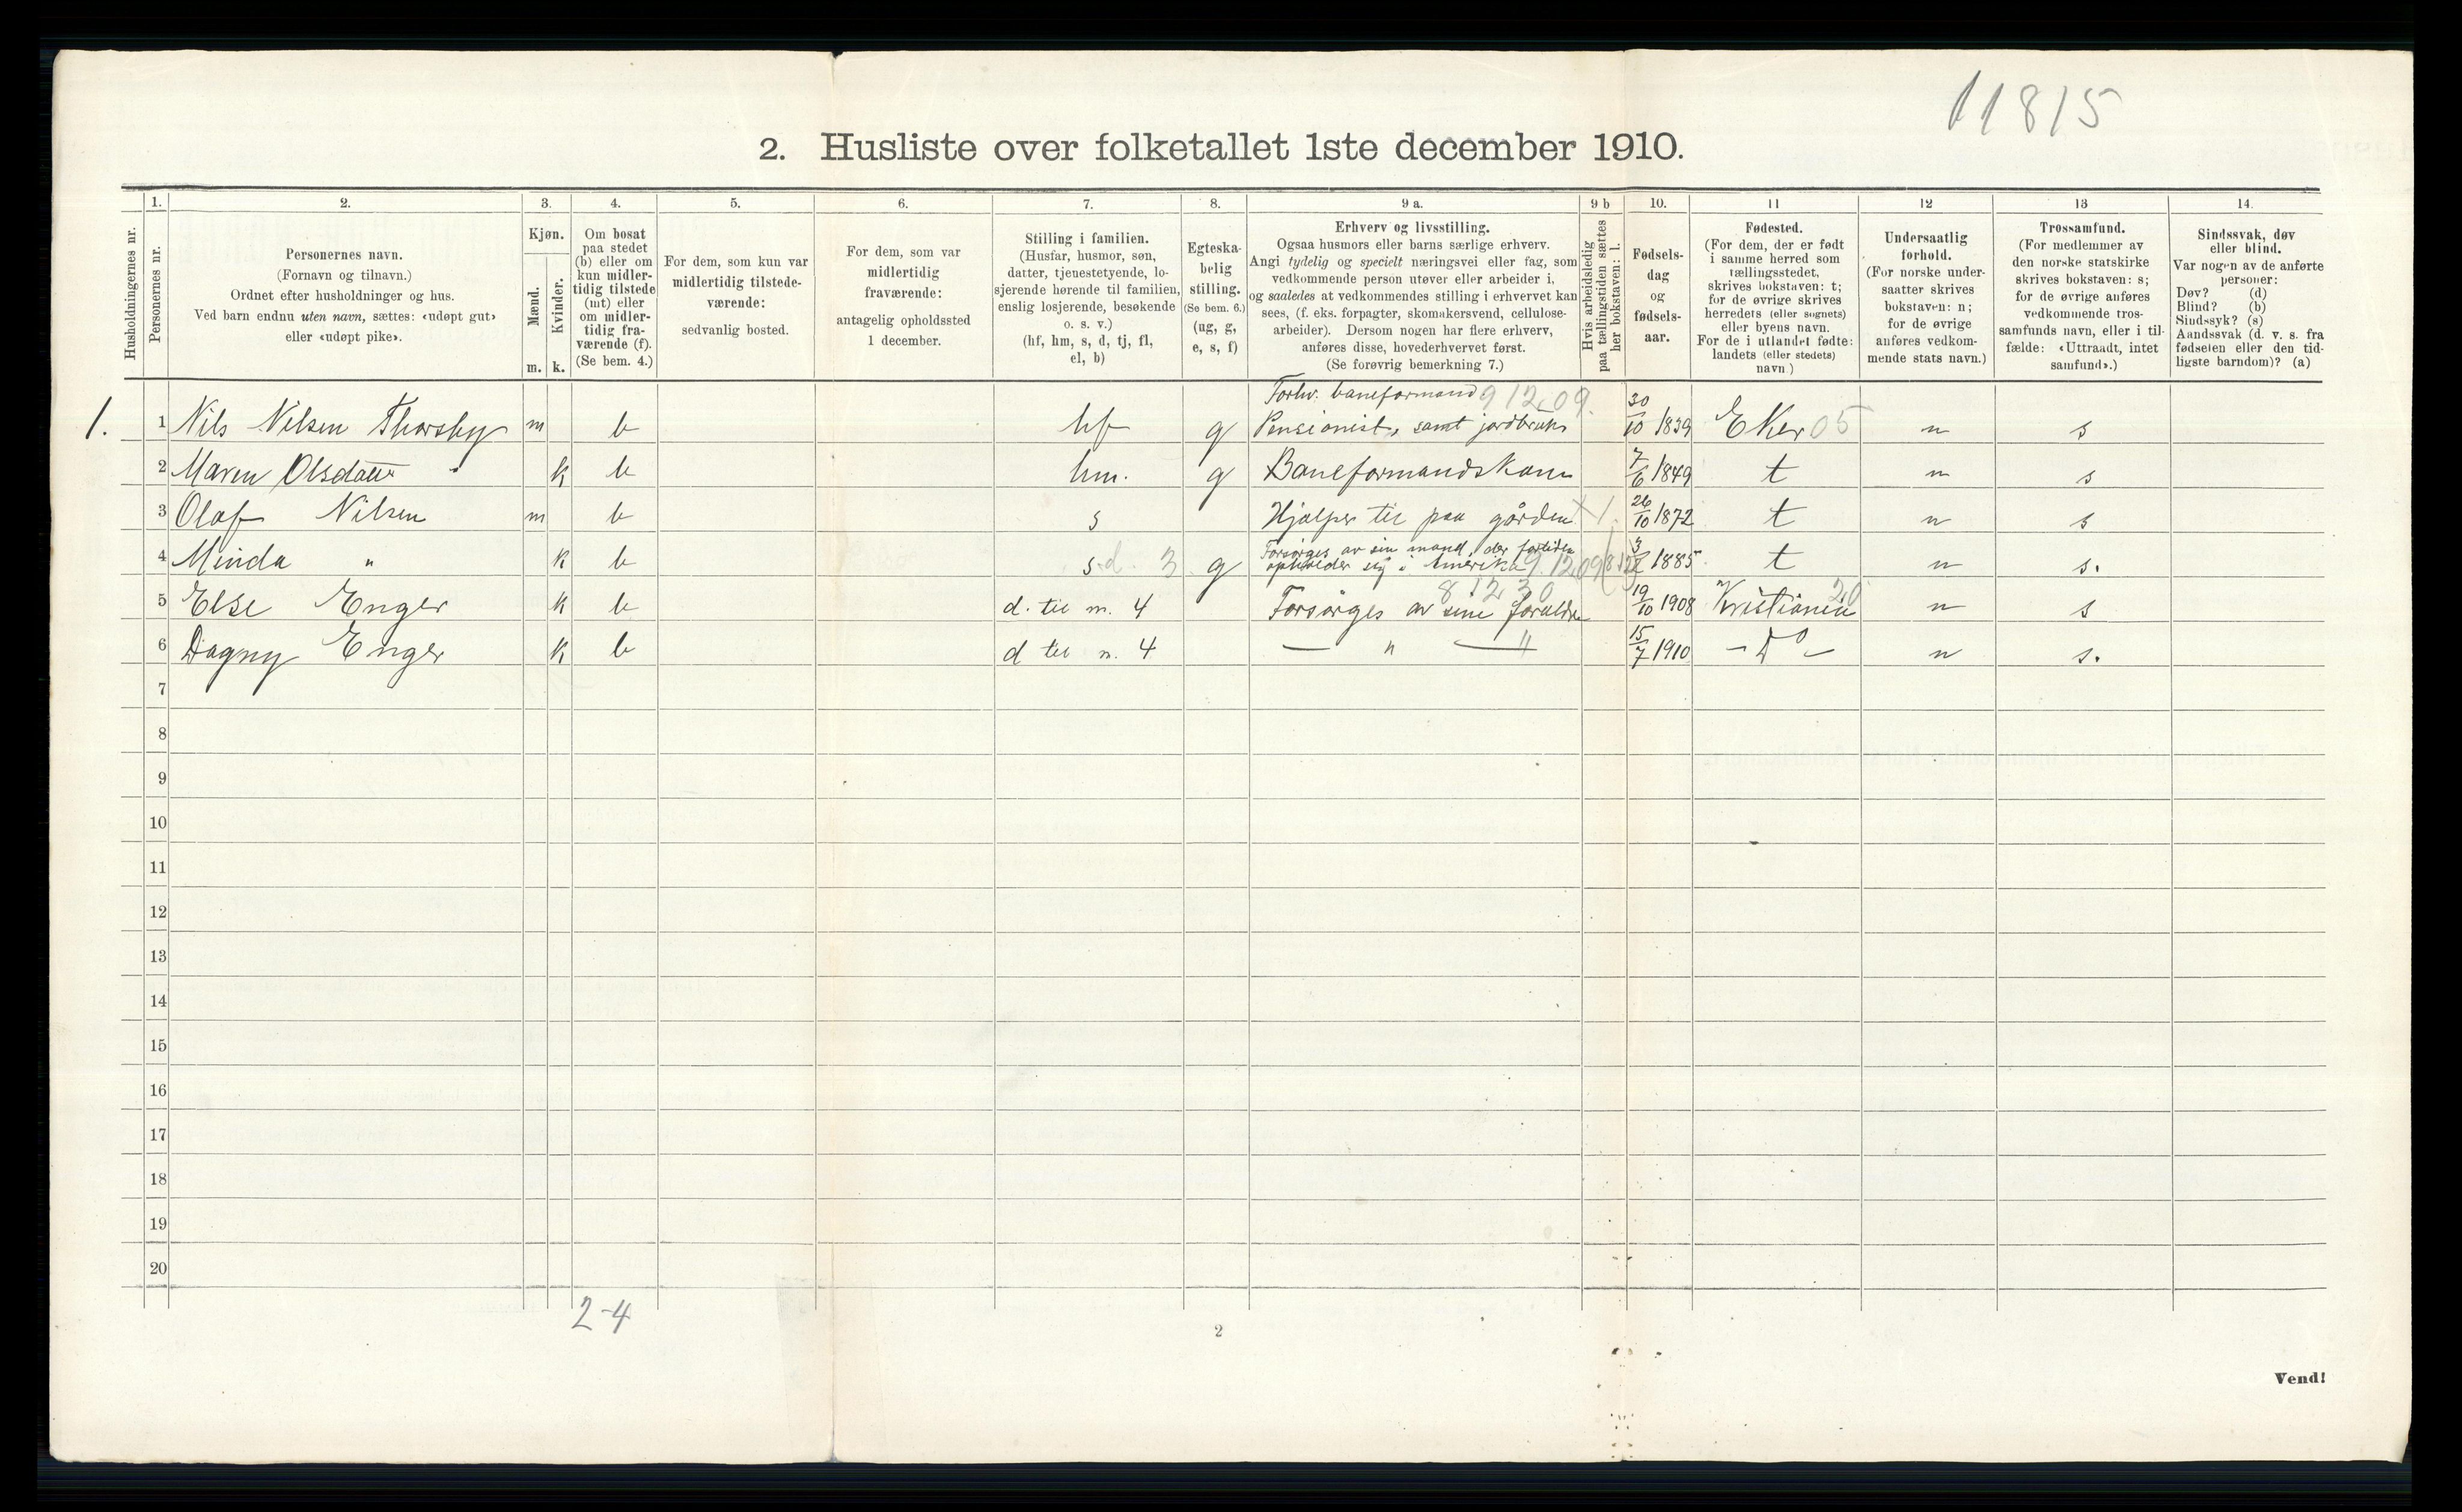 11815
2. Husliste over folketallet 1ste december 1910.
Husholdningernes nr.
1.
Personernes nr.
2.
Personernes navn.
(Fornavn og tilnavn.)
Ordnet efter husholdninger og hus.
Ved barn endnu uten navn, sættes: «udøpt gut»
eller «udøpt pike».
3.
Kjøn.
Mænd.
Kvinder.
m. k.
4.
Om bosat
paa stedet
(b) eller om
kun midler-
tidig tilstede
(mt) eller
om midler-
tidig fra-
værende (f).
(Se bem. 4.)
5.
For dem, som kun var
midlertidig tilstede-
værende:
sedvanlig bosted.
6.
For dem, som var
midlertidig
fraværende:
antagelig opholdssted
1 december.
7.
Stilling i familien.
(Husfar, husmor, søn,
datter, tjenestetyende, lo-
sjerende hørende til familien,
enslig losjerende, besøkende
o. s. v.)
(hf, hm, s, d, tj, fl,
el, b)
8.
Egteska-
belig
stilling.
(Se bem. 6.)
(ug, g,
e, s, f)
9 a.
Erhverv og livsstilling.
Ogsaa husmors eller barns særlige erhverv.
Angi tydelig og specielt næringsvei eller fag, som
vedkommende person utøver eller arbeider i,
og saaledes at vedkommendes stilling i erhvervet kan
sees, (f. eks. forpagter, skomakersvend, cellulose-
arbeider). Dersom nogen har flere erhverv,
anføres disse, hovederhvervet først.
(Se forøvrig bemerkning 7.)
9 b
Hvis arbeidsledig
paa tællingstiden sættes
her bokstaven: l.
10.
Fødsels-
dag
og
fødsels-
aar.
11
Fødested.
(For dem, der er født
i samme herred som
tællingsstedet,
skrives bokstaven: t;
for de øvrige skrives
herredets (eller sognets)
eller byens navn.
For de i utlandet fødte:
landets (eller stedets)
navn.)
12
Undersaatlig
forhold.
(For norske under-
saatter skrives
bokstaven: n;
for de øvrige
anføres vedkom-
mende stats navn.)
13
Trossamfund.
(For medlemmer av
den norske statskirke
skrives bokstaven: s;
for de øvrige anføres
vedkommende tros-
samfunds navn, eller i til-
fælde: «Uttraadt, intet
samfund».)
14.
Sindssvak, døv
eller blind.
Var nogen av de anførte
personer:
Døv? (d)
Blind? (b)
Sindssyk? (s)
Aandssvak (d. v. s. fra
fødselen eller den tid-
ligste barndom)? (a)
Forhv. baneformand 9 12.09.
1. 1 Nils Nilsen Thorsby m b hf g Pensionist, samt jordbruk 30/10 1839 Eker 05 n s
2 Maren Olsdatter k b hm. g Baneformandskone 7/6 1849 t n s
3 Olaf Nilsen m b s Hjælper til paa gården 26/10 1872 t n s
Forsørges av sin mand, der fortiden
4 Minda " k b s d. 3 g opholder sig i Amerika 9.1209 1885 t n s.
8 12 30
5 Else Enger k b d. til m. 4 Forsørges av sine forældre 19/10 1908 Kristiania 20 n s
6 Dagny Enger k b d til m. 4 — " — " 15/7 1910 - Do - n s.
7
8
9
10
11
12
13
14
15
16
17
18
19
20
2-4
2
Vend!